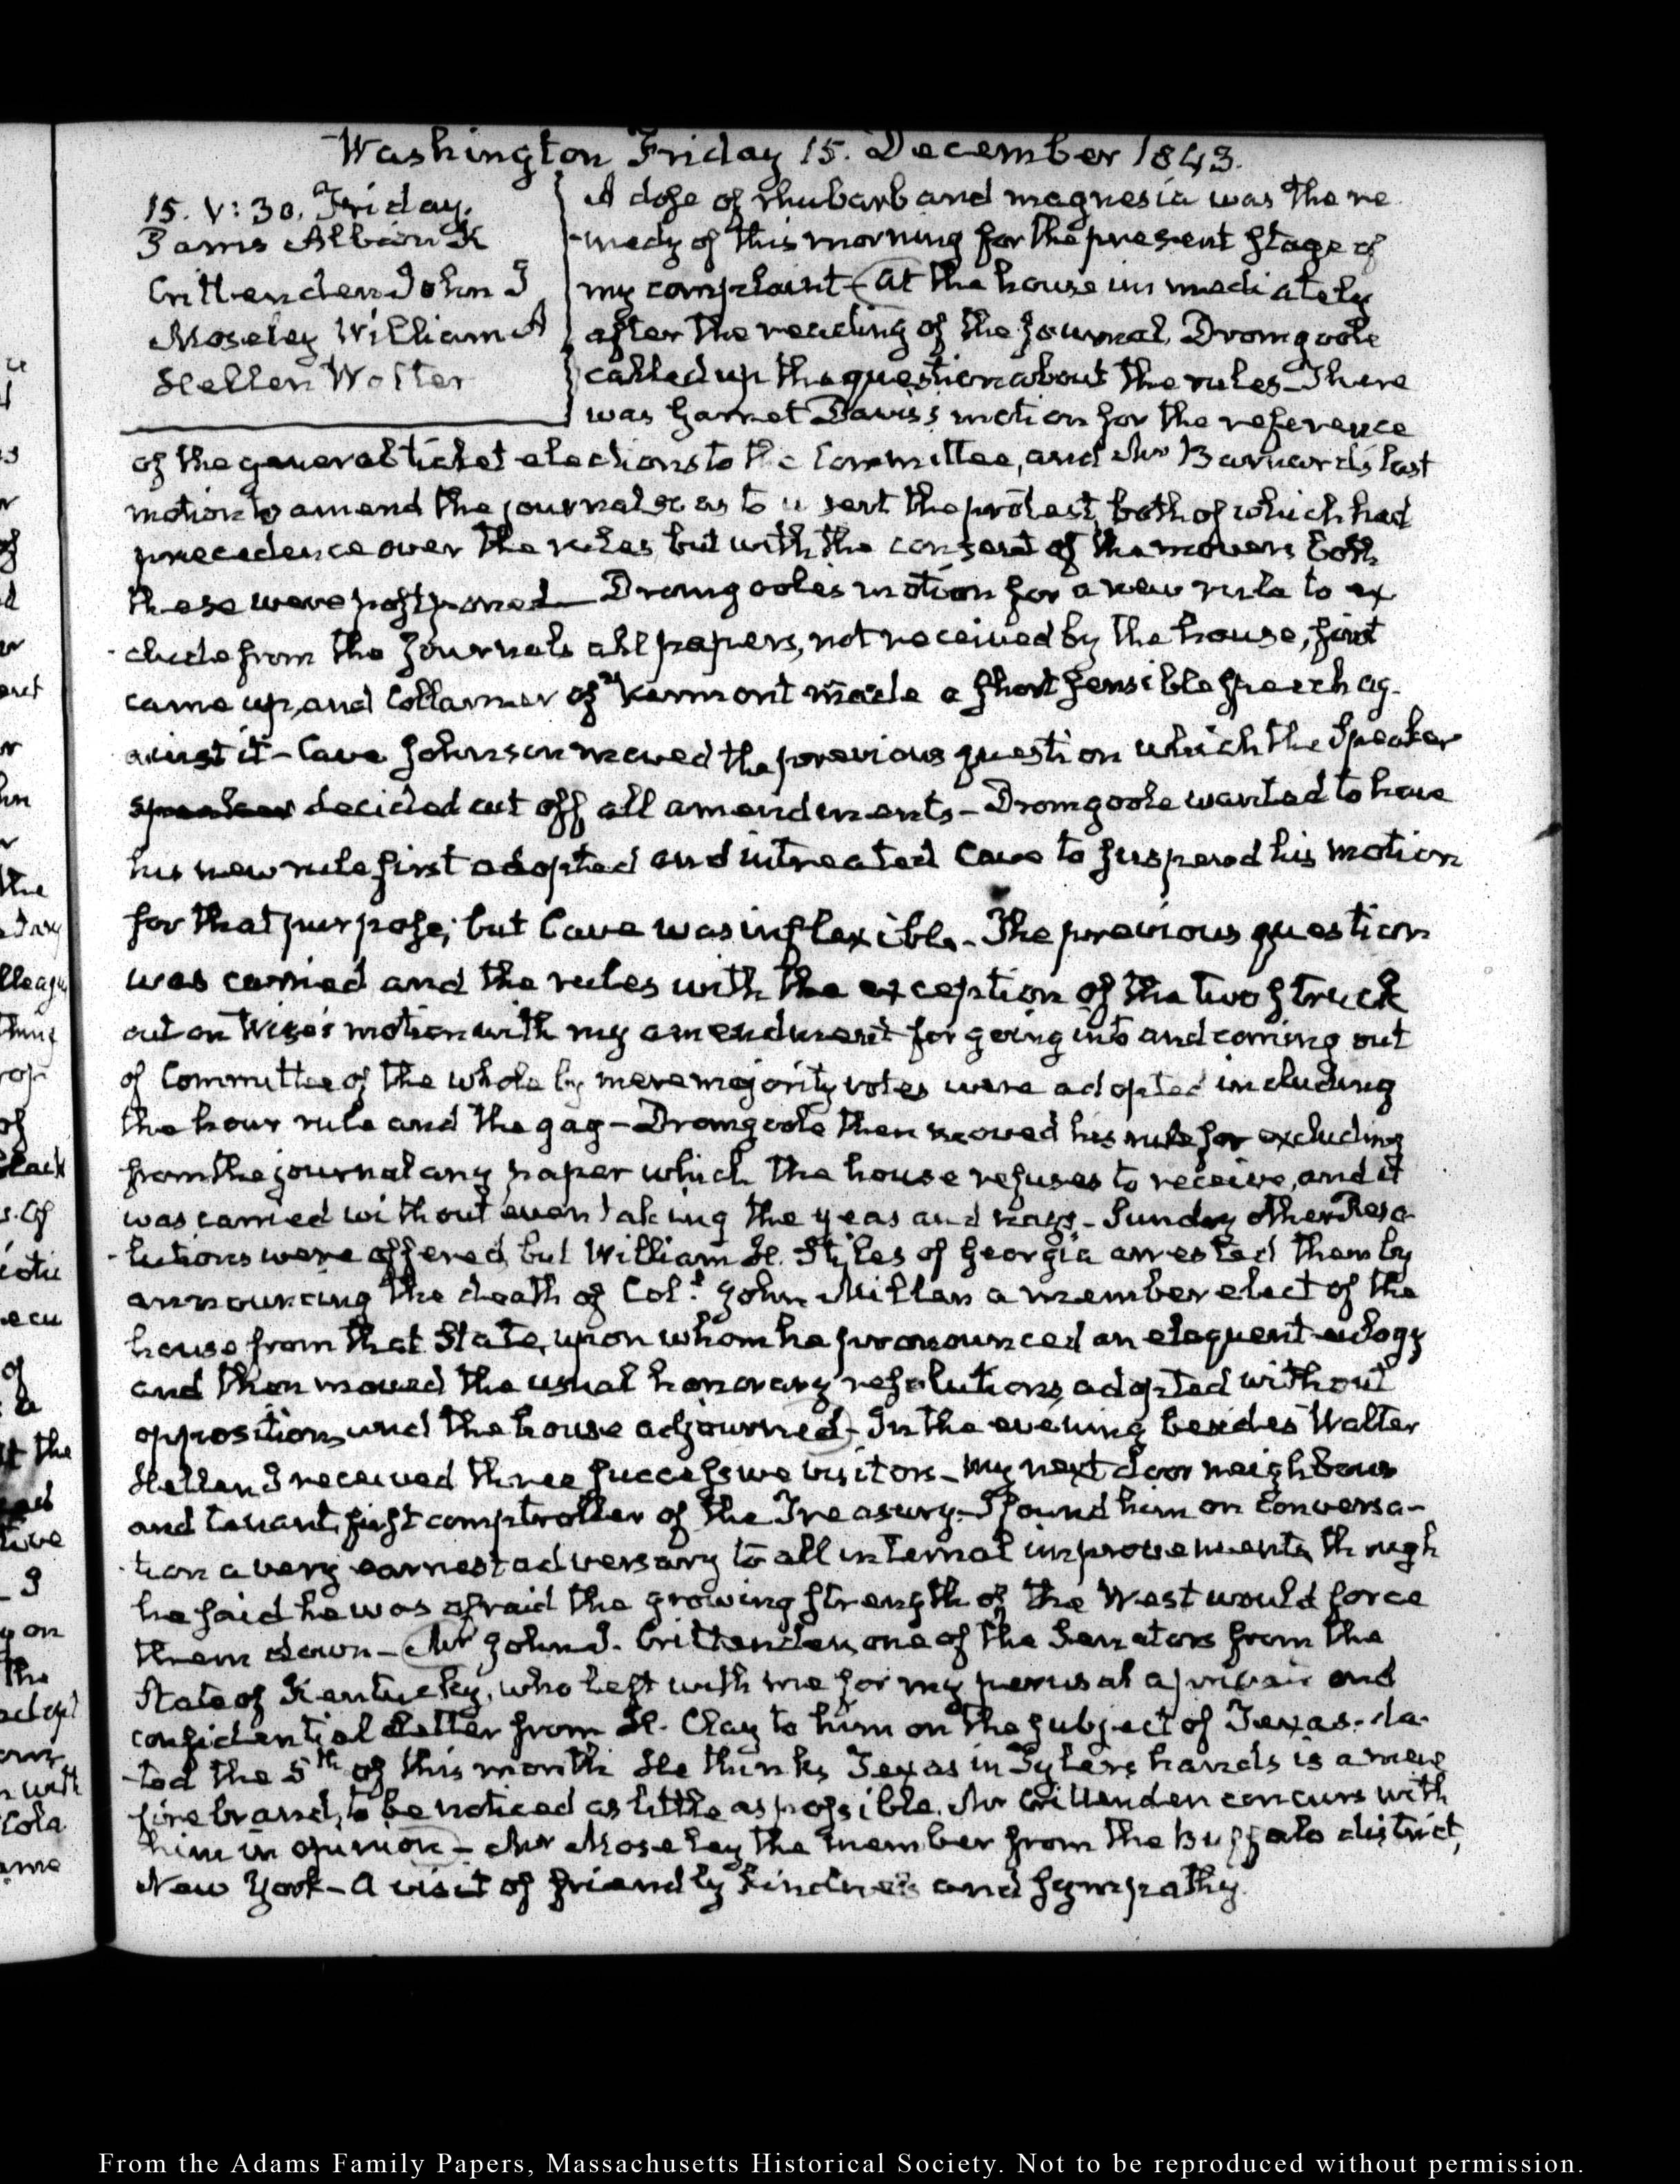 Washington Friday 15. December 1843.
15. V:30. Friday.
Parris Albion K
Crittenden John J
Moseley William A
Hellen Walter
A dose of rhubarb and magnesia was the re
-medy of this morning for the present stage of
my complaint - At the house immediately
after the reading of the journal, Dromgoole
called up the question about the rules - There
was Garret Davis's motion for the reference
of the general ticket elections to the Committee, and Mr Barnard's last
motion to amend the journal so as to insert the protest, both of which had
precedence over the rules, but with the consent of the movers both
these were postponed - Dromgoole's motion for a new rule to ex
-clude from the Journals all papers, not received by the house, first
came up, and Collamer of Vermont made a short sensible speech ag-
ainst it - Cave Johnson moved the previous question which the Speaker
speaker decided cut off all amendments - Dromgoole wanted to have
his new rule first adopted and intreated Cave to suspend his motion
for that purpose; but Cave was inflexible - The previous question
was carried and the rules with the exception of the two struck
out on Wise's motion with my amendment for going into and coming out
of Committee of the whole by mere majority votes were adopted including
the hour rule and the gag - Dromgoole then moved his rule for excluding
from the journal any paper which the house refuses to receive, and it
was carried without even taking the yeas and nays - Sundry other Reso
-lutions were offered, but William H. Stiles of Georgia arrested them by
announcing the death of Col. John Millen a member elect of the
house from that State, upon whom he pronounced an eloquent eulogy
and then moved the usual honorary resolutions, adopted without
opposition, and the house adjourned - In the evening besides Walter
Hellen I received three successive visitors - my next door neighbour
and tenant, first comptroller of the Treasury - I found him on conversa-
-tion a very earnest adversary to all internal improvements, though
he said he was afraid the growing strength of the West would force
them down - Mr John J. Crittenden, one of the Senators from the
State of Kentucky, who left with me for my perusal a private and
confidential letter from H. Clay to him on the subject of Texas - da-
-ted the 5th of this month He thinks Texas in Tyler's hands is a mere
fire brand, to be noticed as little as possible. Mr Crittenden concurs with
him in opinion - Mr Moseley the member from the Buffalo district,
New York - A visit of friendly kindness and sympathy.
From the Adams Family Papers, Massachusetts Historical Society. Not to be reproduced without permission.